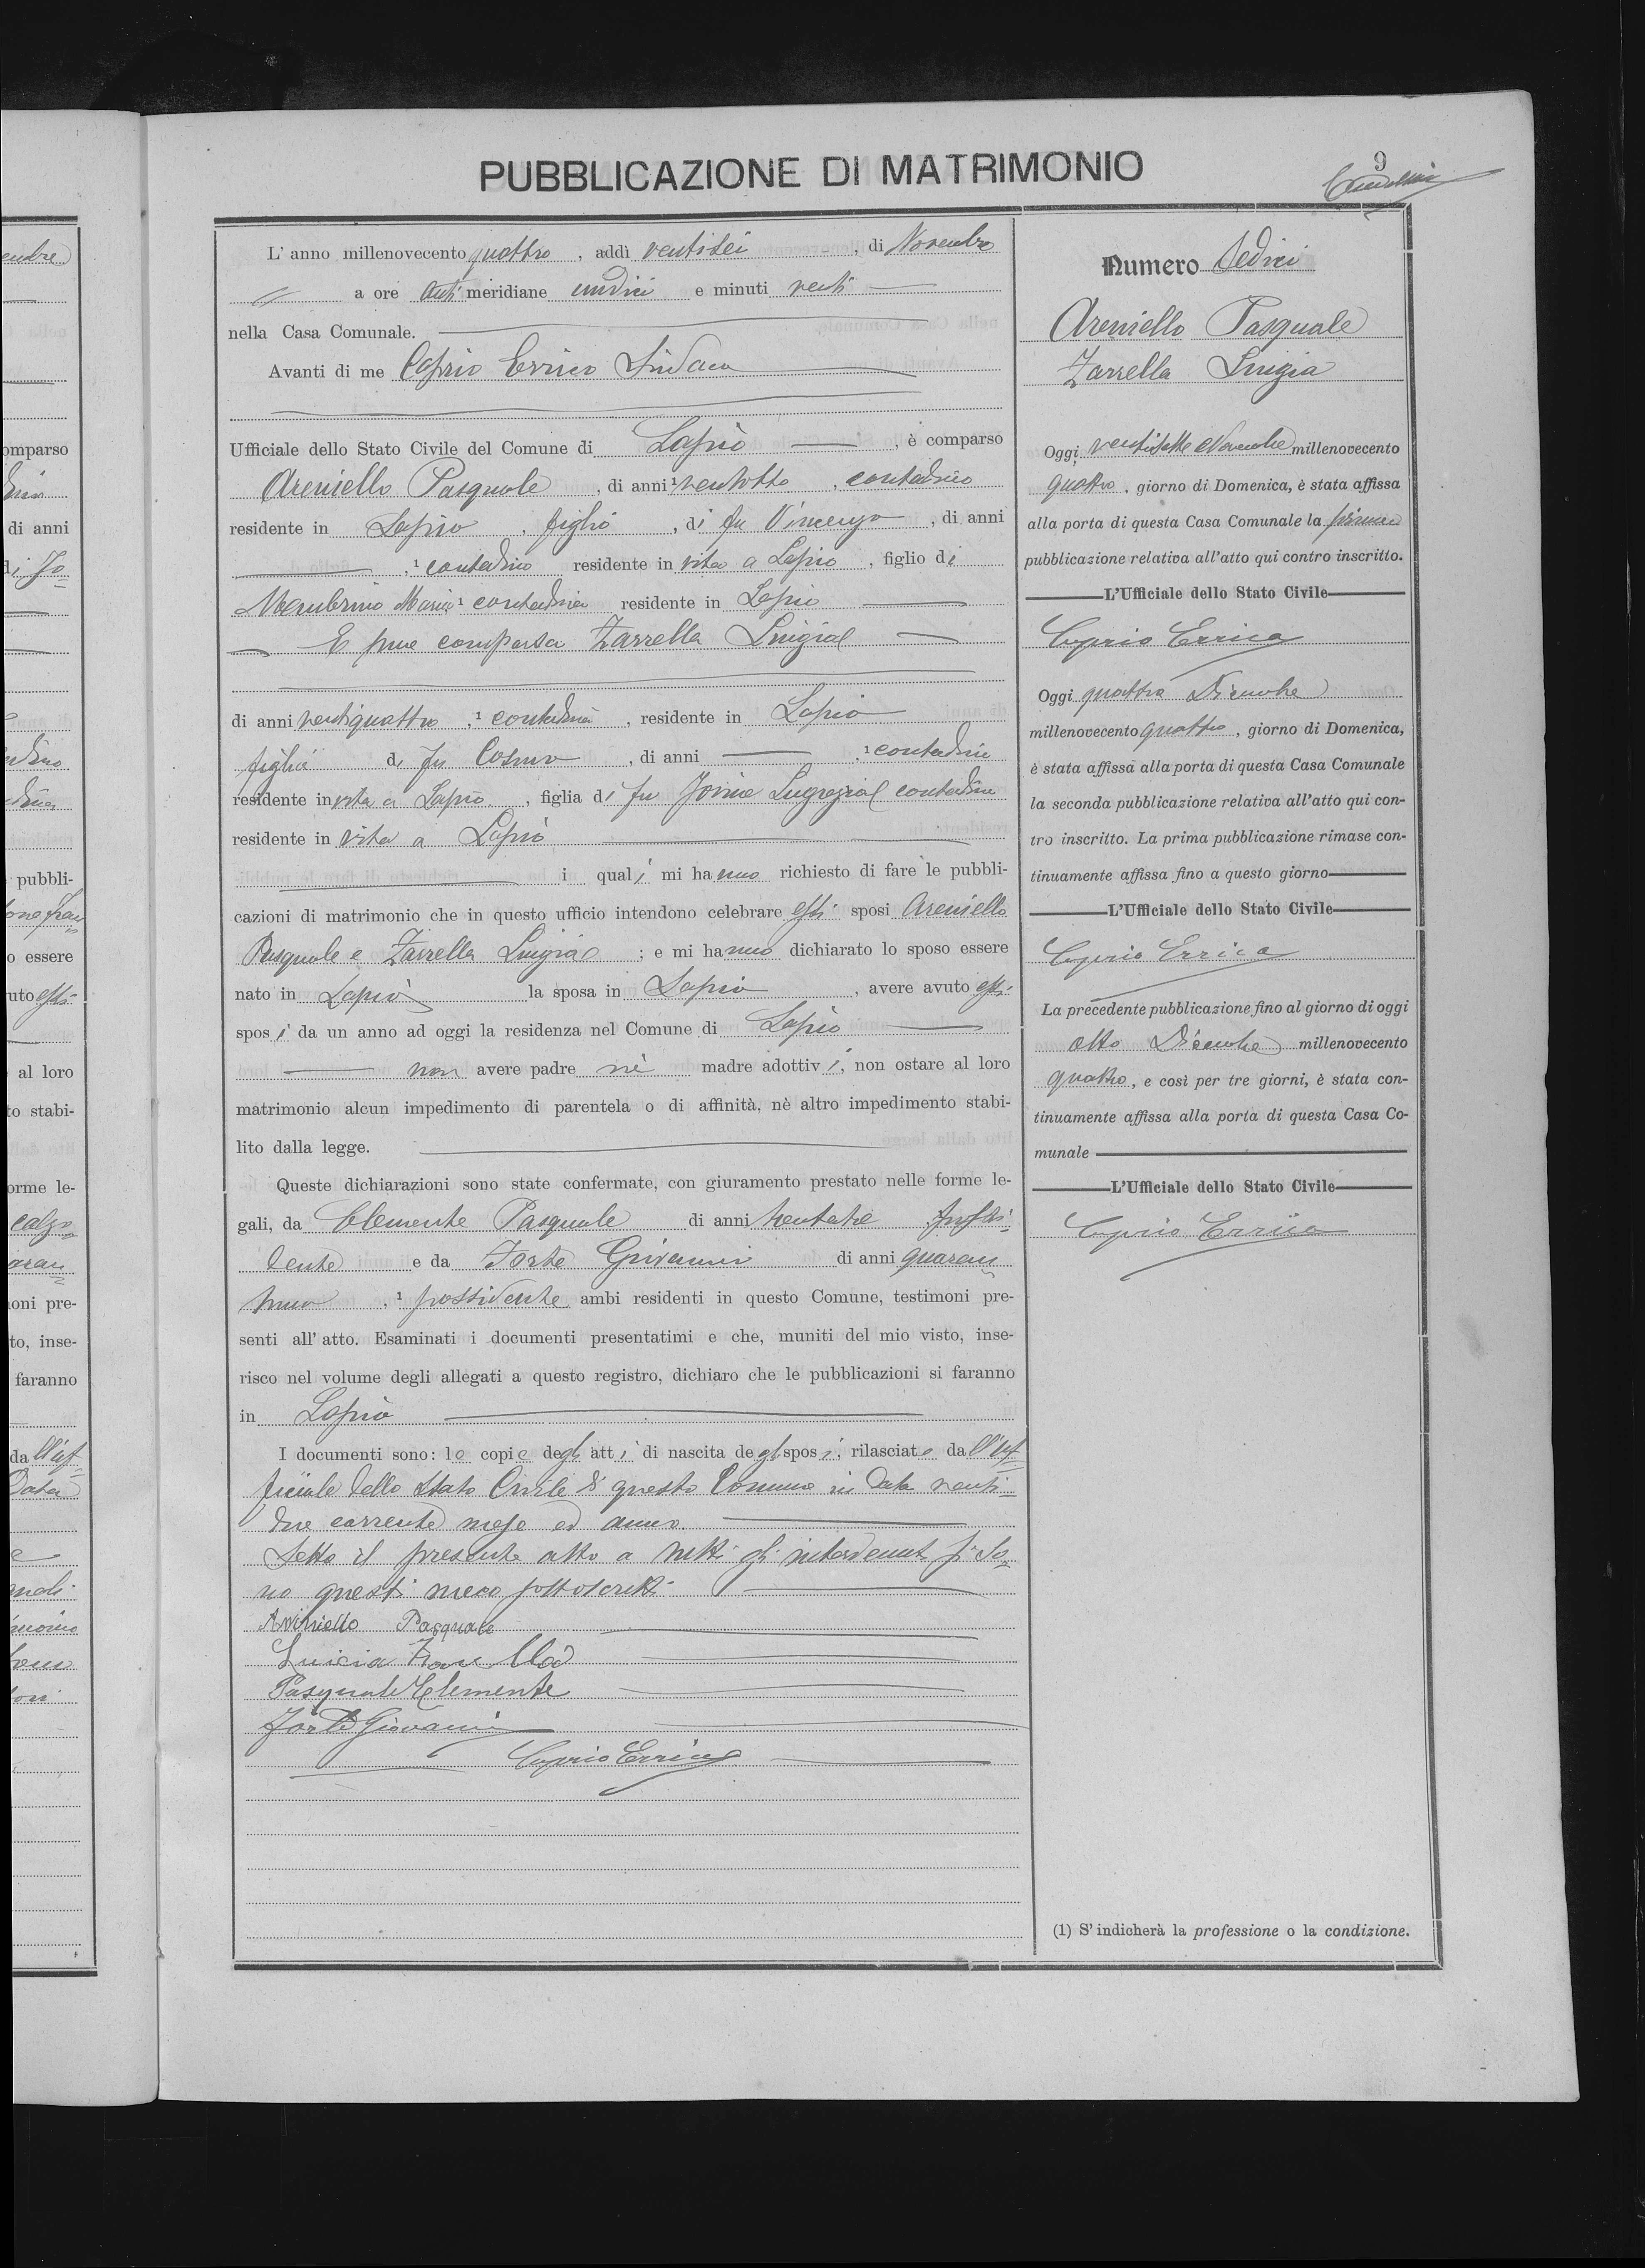 PUBBLICAZIONE DI MATRIMONIO
9
L'anno millenovecento quattro, addì ventisei, di Novembre
a ore anti meridiane undici e minuti venti
nella Casa Comunale.
Avanti di me Caprio Errico Sindaco
Ufficiale dello Stato Civile del Comune di Lapio, è comparso
Areniello Pasquale, di anni ¹ ventotto, contadino
residente in Lapio, figlio, di fu Vincenzo, di anni
, ¹ contadino residente in vita a Lapio, figlio di
Maria ¹ contadina residente in Lapio
E pure comparsa Zarrella Luigia
di anni ventiquattro, ¹ contadina, residente in Lapio
figlia di fu Cosmo, di anni , ¹ contadino
residente in vita a Lapio, figlia di fu Lugrezia contadina
residente in vita a Lapio
i quali mi hanno richiesto di fare le pubbli-
cazioni di matrimonio che in questo ufficio intendono celebrare essi sposi Areniello
Pasquale e Zarrella Luigia; e mi hanno dichiarato lo sposo essere
nato in Lapio la sposa in Lapio, avere avuto essi
sposi da un anno ad oggi la residenza nel Comune di Lapio
non avere padre nè madre adottivi, non ostare al loro
matrimonio alcun impedimento di parentela o di affinità, nè altro impedimento stabi-
lito dalla legge.
Queste dichiarazioni sono state confermate, con giuramento prestato nelle forme le-
gali, da Clemente Pasquale di anni trentatre possi-
dente e da Forte Giovanni di anni quaran
tuno, ¹ possidente ambi residenti in questo Comune, testimoni pre-
senti all'atto. Esaminati i documenti presentatimi e che, muniti del mio visto, inse-
risco nel volume degli allegati a questo registro, dichiaro che le pubblicazioni si faranno
in Lapio
I documenti sono: le copie degli atti di nascita degli sposi, rilasciate dall'uf-
ficiale dello Stato Civile di questo Comune in data venti-
due corrente mese ed anno.
Letto il presente atto a tutti gli intervenuti si so-
no questi meco sottoscritti
Pasquale
Luicia Zarrella
Pasquale Clemente
Forte Giovanni
Caprio Errico
Numero Sedici
Areniello Pasquale
Zarrella Luigia
Oggi, ventisette Novembre millenovecento
quattro, giorno di Domenica, è stata affissa
alla porta di questa Casa Comunale la prima
pubblicazione relativa all'atto qui contro inscritto.
L'Ufficiale dello Stato Civile
Caprio Errico
Oggi quattro Dicembre
millenovecento quattro, giorno di Domenica,
è stata affissa alla porta di questa Casa Comunale
la seconda pubblicazione relativa all'atto qui con-
tro inscritto. La prima pubblicazione rimase con-
tinuamente affissa fino a questo giorno
L'Ufficiale dello Stato Civile
Caprio Errico
La precedente pubblicazione fino al giorno di oggi
otto Dicembre millenovecento
quattro, e così per tre giorni, è stata con-
tinuamente affissa alla porta di questa Casa Co-
munale
L'Ufficiale dello Stato Civile
Caprio Errico
(1) S'indicherà la professione o la condizione.